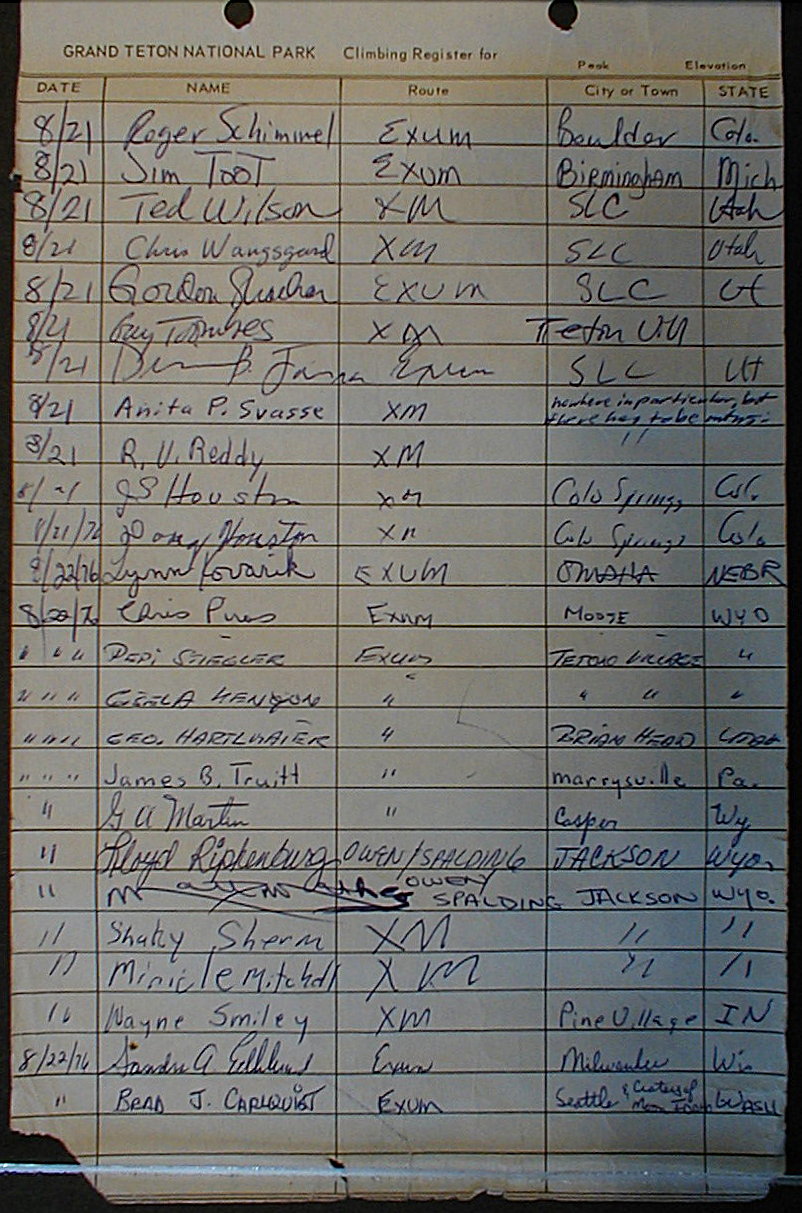 GRAND TETON NATIONAL PARK Climbing Register for
Peak Elevation
DATE NAME Route City or Town STATE
8/21 Roger Schimmel EXUM Boulder Colo.
8/21 Jim TOOT EXUM BIRMINGHAM Mich
8/21 Ted Wilson XM SLC Utah
8/21 Chris Wangsgard XM SLC Utah
8/21 Gordon EXUM SLC Ut
8/21 Guy Toombes XM Teton Vill
8/21 B. Exum SLC Ut
8/21 Anita P. Svasse XM nowhere in particular, but
there has to be mtns.
8/21 R. V. Reddy XM "
8/21 JS Houston XM Colo Springs Col.
8/21/76 Doug Houston XM Colo Springs Colo
8/22/76 Lynn Kovarik EXUM OMAHA NEBR
8/22/76 Chris EXUM MOOSE WYO
" " " PEPI STIEGLER EXUM TETON VILLAGE "
" " " " " " "
" " " GEO. HARTLMAIER " BRIAN HEAD UTAH
" " " James B. Truitt " marrysville Pa.
" G A Martin " Casper Wy
" Lloyd Ripkenburg OWEN/SPALDING JACKSON Wyo.
" OWEN SPALDING JACKSON WYO.
" Shaky Sherm XM " "
" Mitchell XM " "
" Wayne Smiley XM Pine Village IN
8/22/76 Sandra A Exum Milwaukee Wis
" BRAD J. CARLQUIST EXUM Seattle & WASH